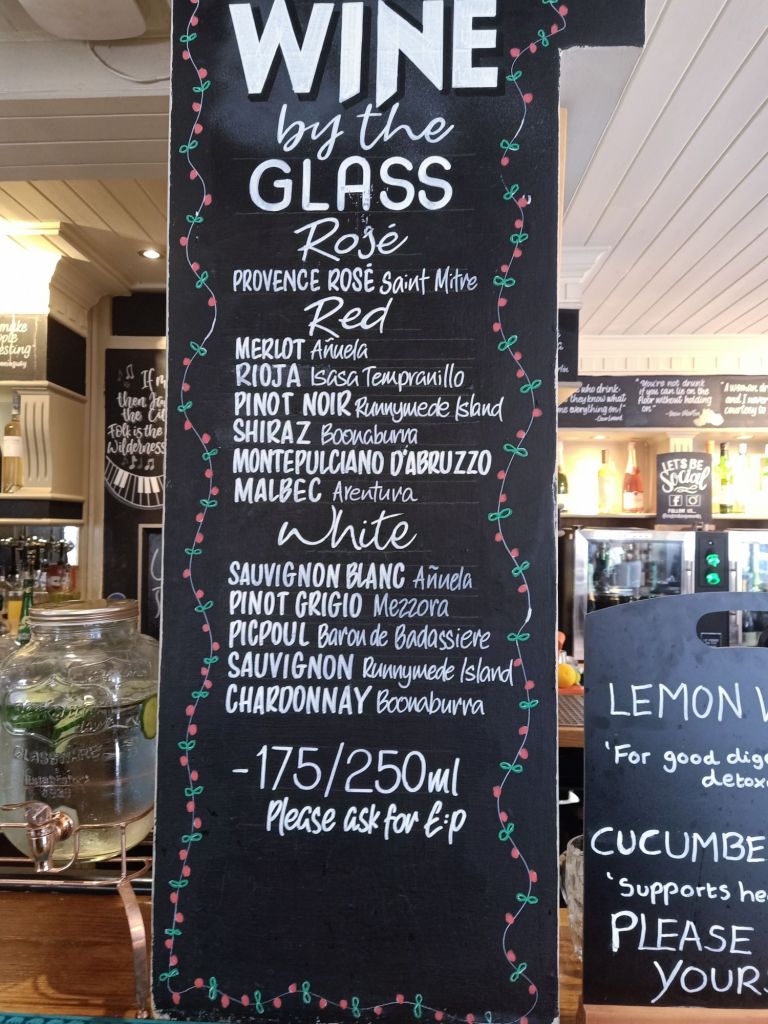 WINE
by the
GLASS
Rosé
PROVENCE ROSÉ Saint Mitre
Red
MERLOT Añuela
RIOJA Isasa Tempranillo
PINOT NOIR Runnymede Island
SHIRAZ Boonaburra
MONTEPULCIANO D'ABRUZZO
MALBEC Arentuva
White
SAUVIGNON BLANC Añuela
PINOT GRIGIO Mezzora
PICPOUL Baron de Badassiere
SAUVIGNON Runnymede Island
CHARDONNAY Boonaburra
-175/250ml
Please ask for £:p
If m
then Ja
the Ci
Folk is the
Wilderness
who drink
they know what
everything on!
"You're not drunk
if you can lie on the
floor without holding
on."
"A woman dr
and I never
courtesy to
LET'S BE
Social
FOLLOW US...
LEMON
'For good dige
detox
CUCUMBE
'Supports he
PLEASE
YOURS